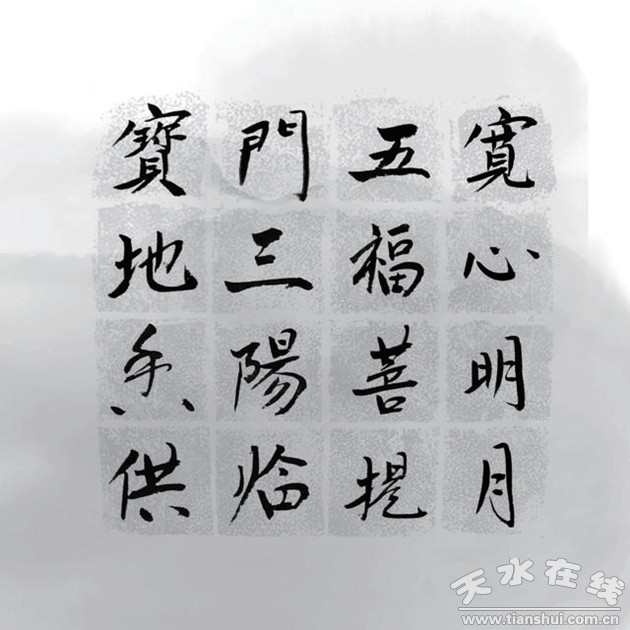 寬心明月
五福菩提
門三陽临
寶地供
天水在线
www.tianshui.com.cn